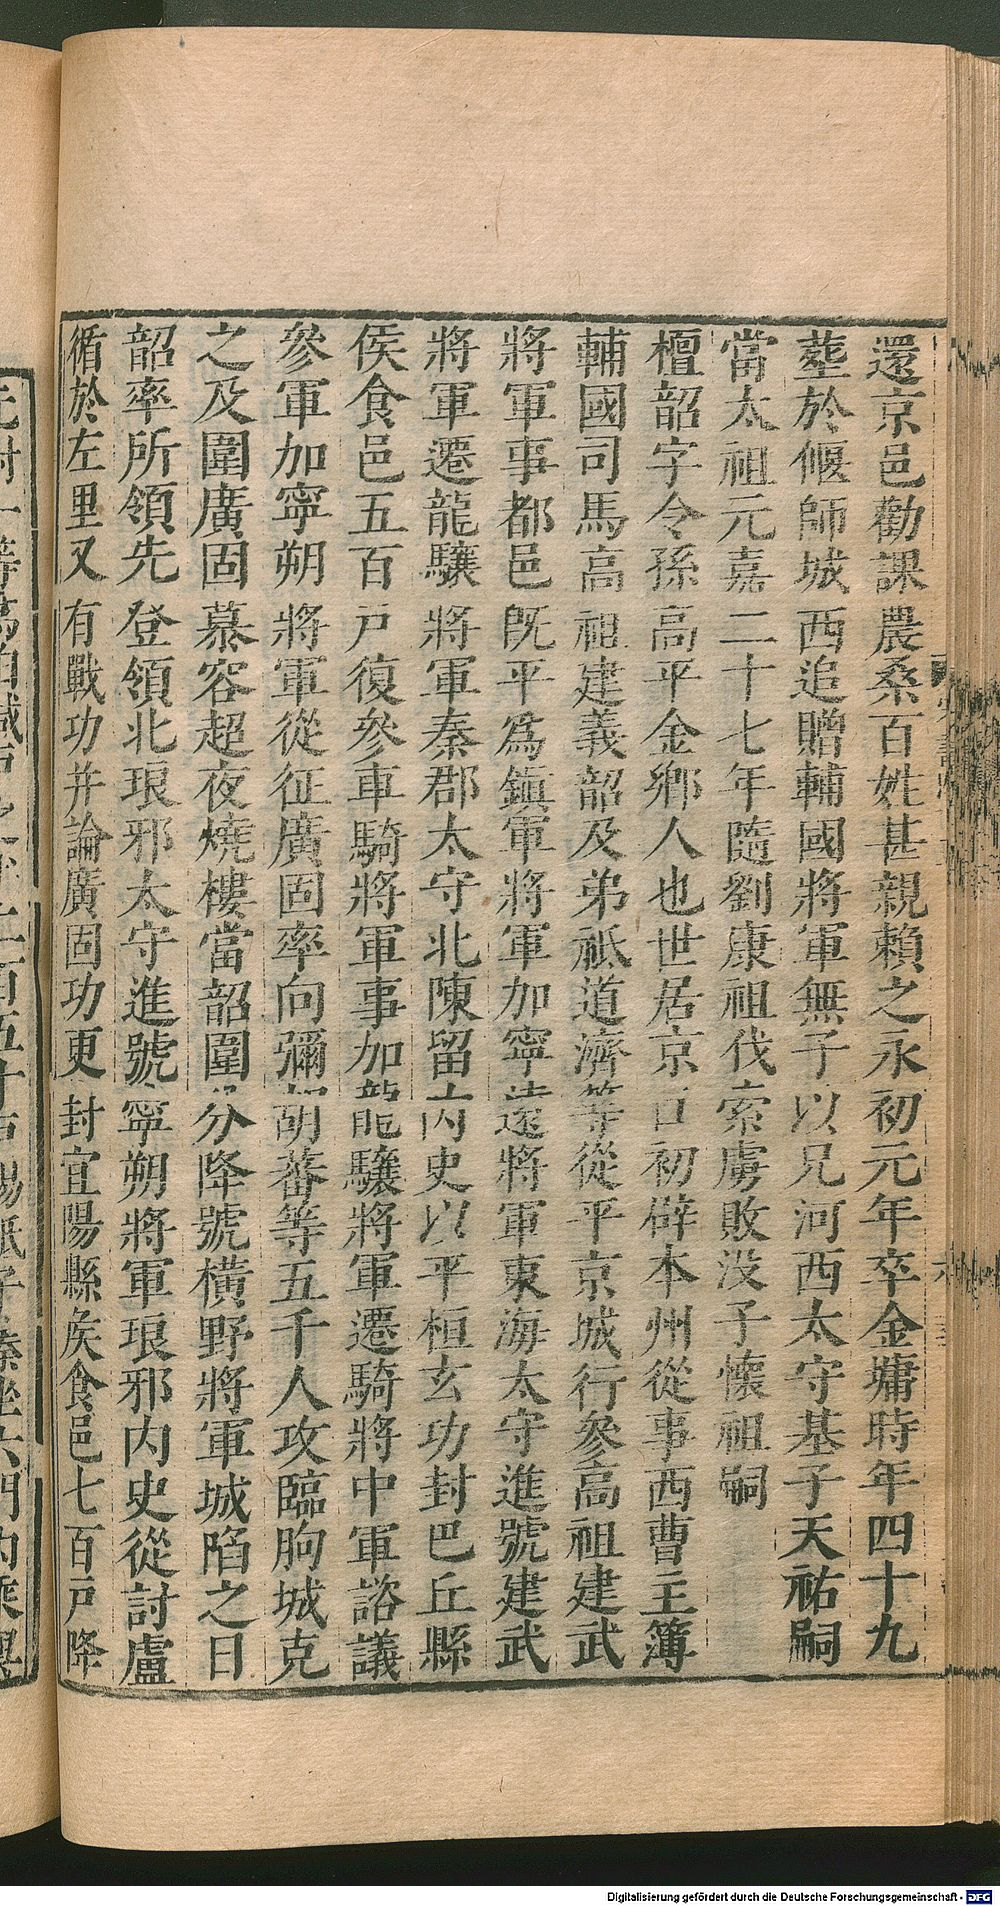 還京邑勸課農桑百姓甚親賴之永初元年卒金墉時年四十九
葬於偃師城西追贈輔國將軍無子以兄河西太守基子天祐嗣
當太祖元嘉二十七年隨劉康祖伐索虜敗没子懷祖嗣
檀韶字令孫高平金鄉人也世居京口初辟本州從事西曹主簿
輔國司馬高祖建義韶及弟祗道濟等從平京城行參高祖建武
將軍事都邑既平爲鎮軍將軍加寧遠將軍東海太守進號建武
將軍遷龍驤將軍秦郡太守北陳留內史以平桓玄功封巴丘縣
侯食邑五百戸復參車騎將軍事加龍驤將軍遷騎將中軍諮議
參軍加寧朔將軍從征廣固率向彌胡蕃等五千人攻臨朐城克
之及圍廣固慕容超夜燒樓當韶圍分降號橫野將軍城陷之日
韶率所領先登領北琅邪太守進號寧朔將軍琅邪内史從討盧
循於左里又有戰功并論廣固功更封宜陽縣矦食邑七百戸降
Digitalisierung gefördert durch die Deutsche Forschungsgemeinschaft - DFG